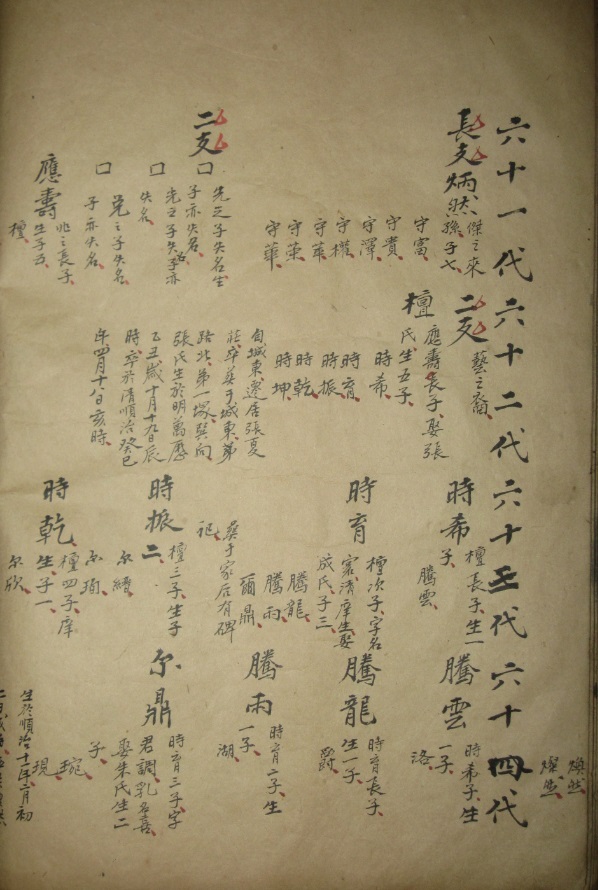 燦然
燦然
六十一代
長支
炳然
傑之來
孫子七
守富
守貴
守澤
守權
守華
守榮
守華
二支
口
先之子失名生
子亦失名
口
先之子失名子亦
失名
口
堯之子失名
子亦失名
應壽
兆之長子
生子五
檀
六十二代
二支
藝之裔
檀
應壽長子娶張
氏生五子
時希
時育
時振
時乾
時坤
自城東遷居張夏
莊卒葬于城東第
路北第一塚巽向
張氏生於明萬歷
乙丑歲十月十九日辰
時卒於清順治癸巳
年四月十八日亥時
六十三代
時希
檀長子生一
子
騰雲
時育
檀次子字名
寰清庠生娶
成氏子三
騰龍
騰雨
爾鼎
葬于家后有碑
記
時振
檀三子生子
二
尔緒
尔珣
時乾
檀四子庠
生子一
尔欣
六十四代
騰雲
時希子生
一子
洛
騰龍
時育長子
生一子
爵
騰雨
時育二子生
一子
湖
尔鼎
時育三子字
君調乳名喜
娶朱氏生二
子
琬
現
生於順治十一年二月初